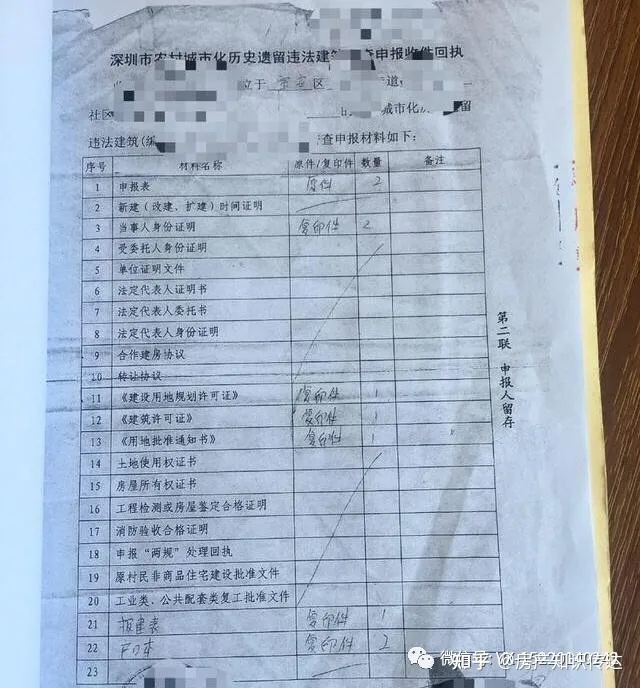 深圳市农村城市化历史遗留违法建筑 查申报收件回执
位于 宝安 区 道
社区 城市化 留
违法建筑(编 查申报材料如下:
序号 材料名称 原件/复印件 数量 备注
1 申报表 原件 2
2 新建(改建、扩建)时间证明
3 当事人身份证明 复印件 2
4 受委托人身份证明
5 单位证明文件
6 法定代表人证明书
7 法定代表人委托书
8 法定代表人身份证明
9 合作建房协议
10 转让协议
11 《建设用地规划许可证》 复印件 1
12 《建筑许可证》 复印件 1
13 《用地批准通知书》 复印件 1
14 土地使用权证书
15 房屋所有权证书
16 工程检测或房屋鉴定合格证明
17 消防验收合格证明
18 申报“两规”处理回执
19 原村民非商品住宅建设批准文件
20 工业类、公共配套类复工批准文件
21 报建表 复印件 1
22 户口本 复印件 2
23
第二联 申报人留存
微信号:
知乎 @房产知识传达